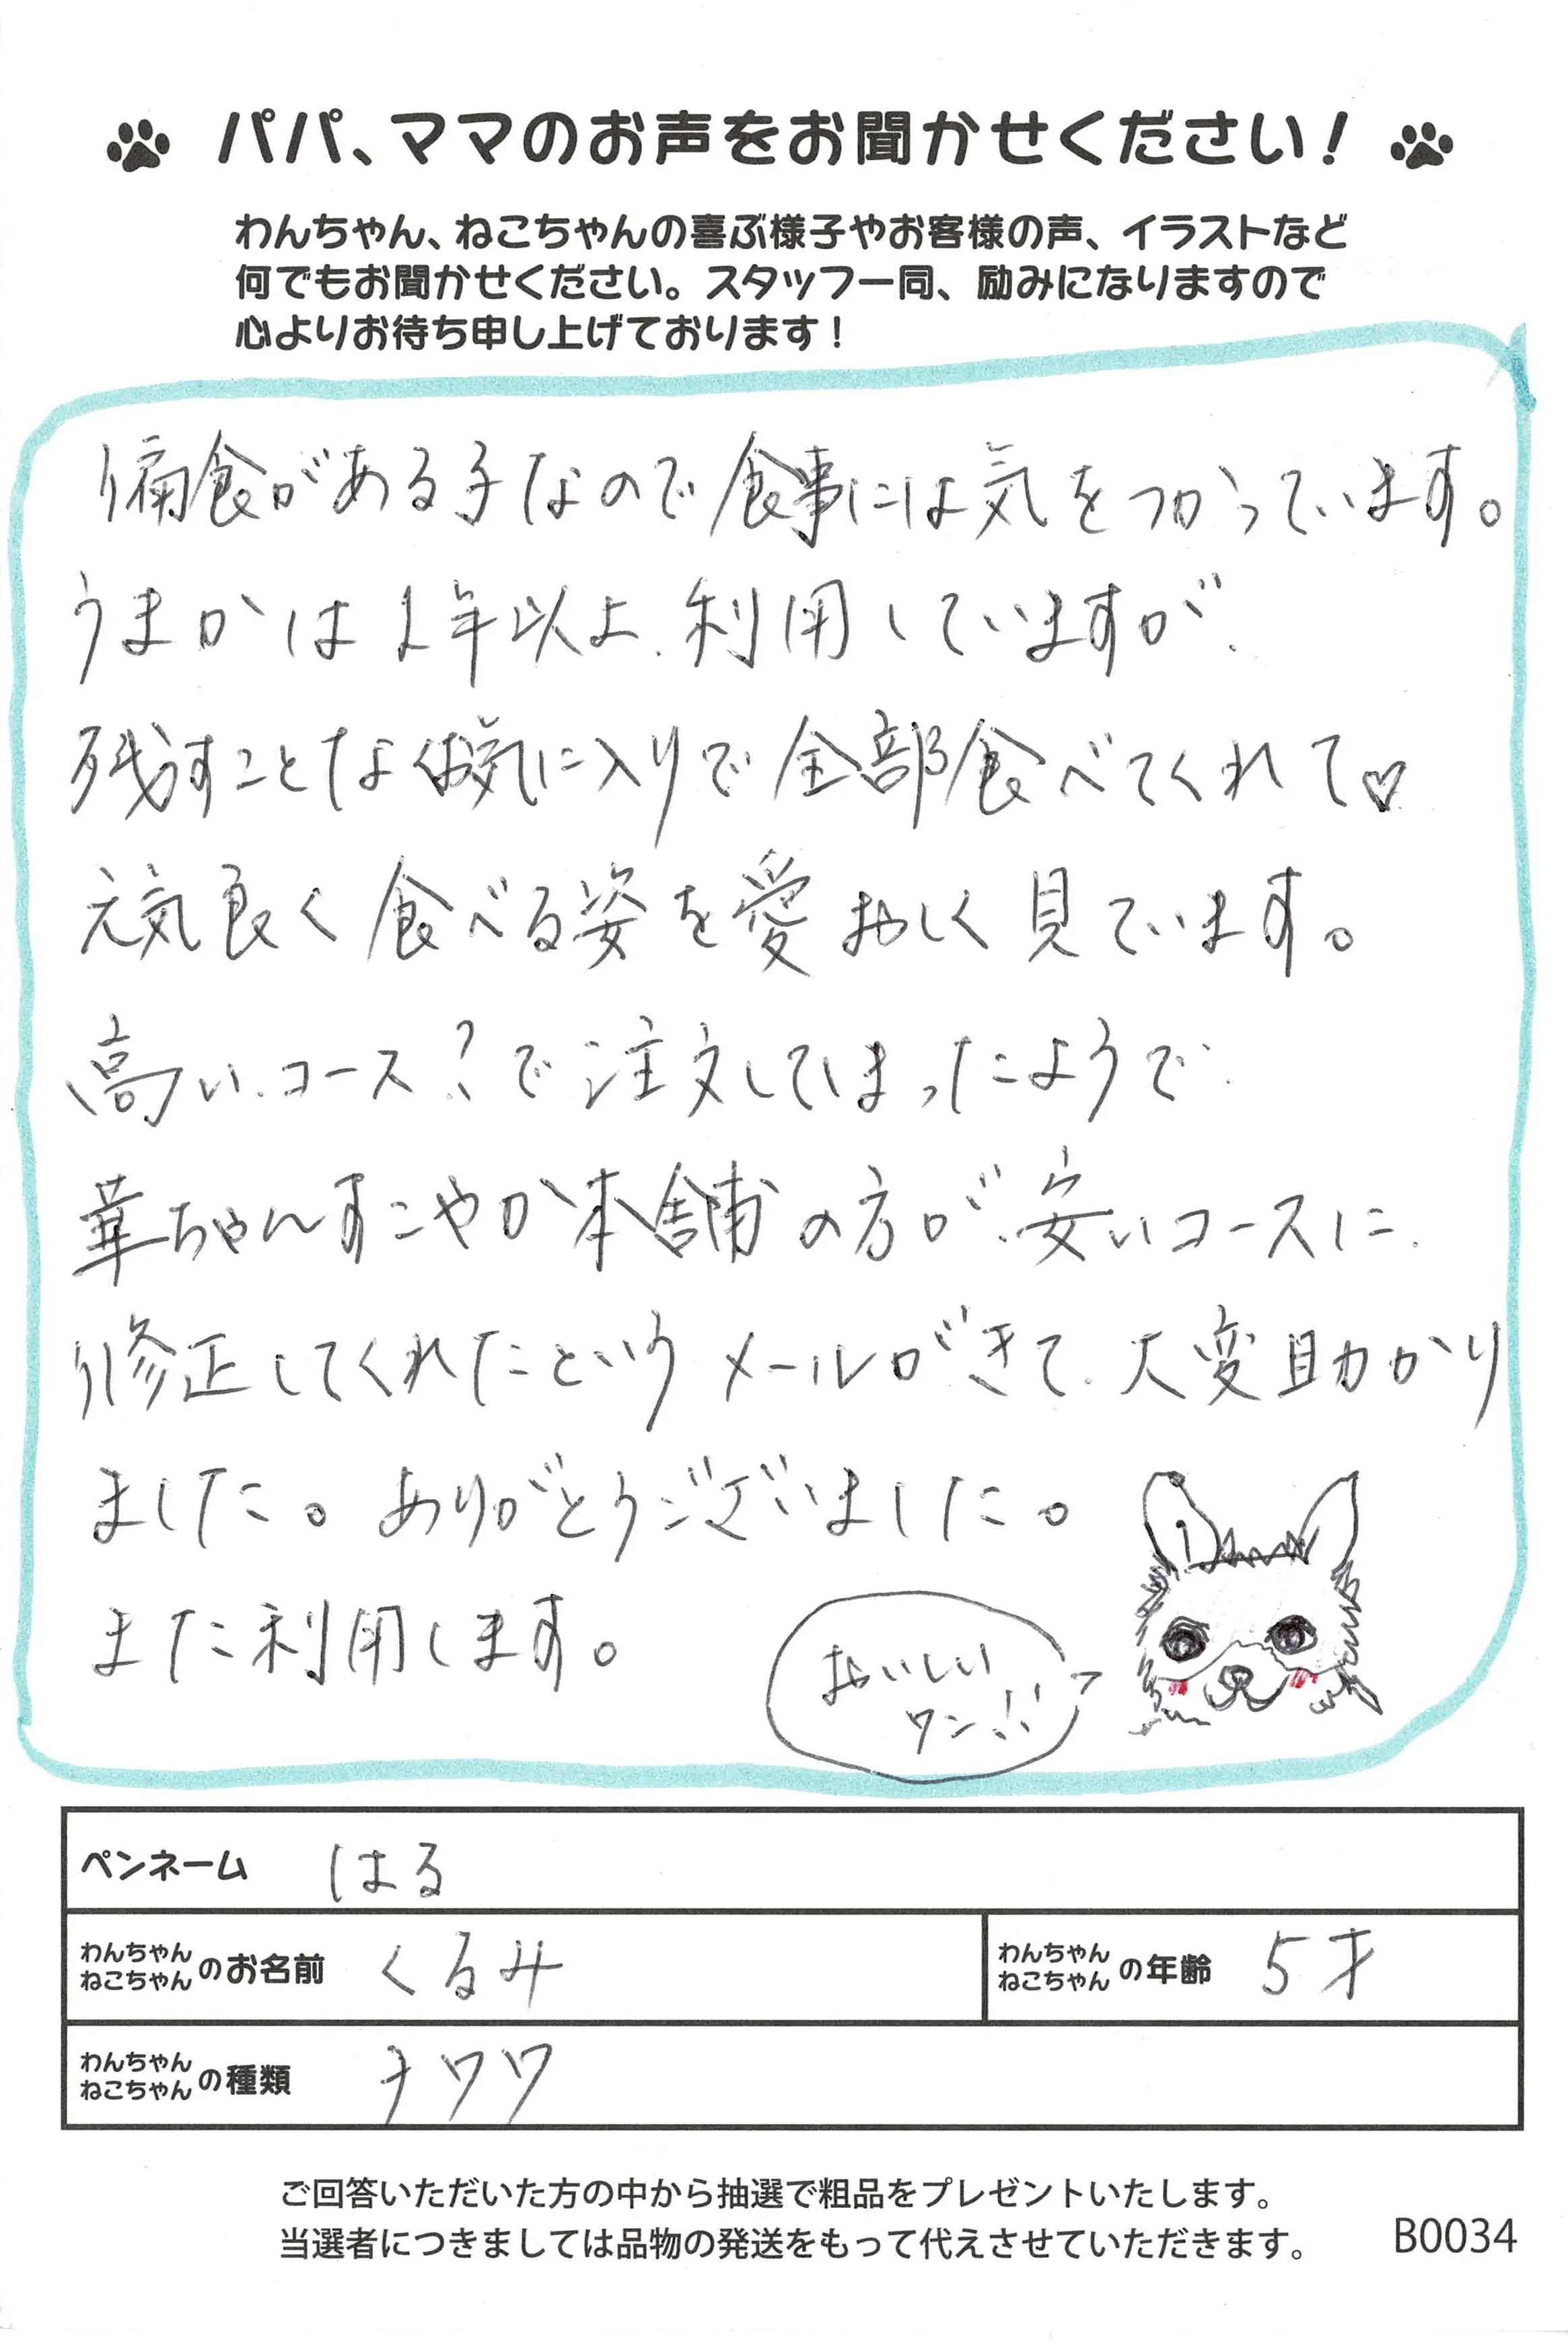 パパ、ママのお声をお聞かせください!
わんちゃん、ねこちゃんの喜ぶ様子やお客様の声、イラストなど
何でもお聞かせください。スタッフ一同、励みになりますので
心よりお待ち申し上げております!
偏食がある子なので食事には気をつかっています。
うまかは1年以上、利用していますが、
残すことなくお気に入りで全部食べてくれて♡
元気良く食べる姿を愛おしく見ています。
高い、コース?で注文してしまったようで、
華ちゃんすこやか本舗の方が、安いコースに、
修正してくれたというメールがきて、大変助かり
ました。ありがとうございました。
また利用します。
おいしい
ワン!!
ペンネーム はる
わんちゃん ねこちゃん のお名前 くるみ わんちゃん ねこちゃん の年齢 5才
わんちゃん ねこちゃん の種類 チワワ
ご回答いただいた方の中から抽選で粗品をプレゼントいたします。
当選者につきましては品物の発送をもって代えさせていただきます。 B0034